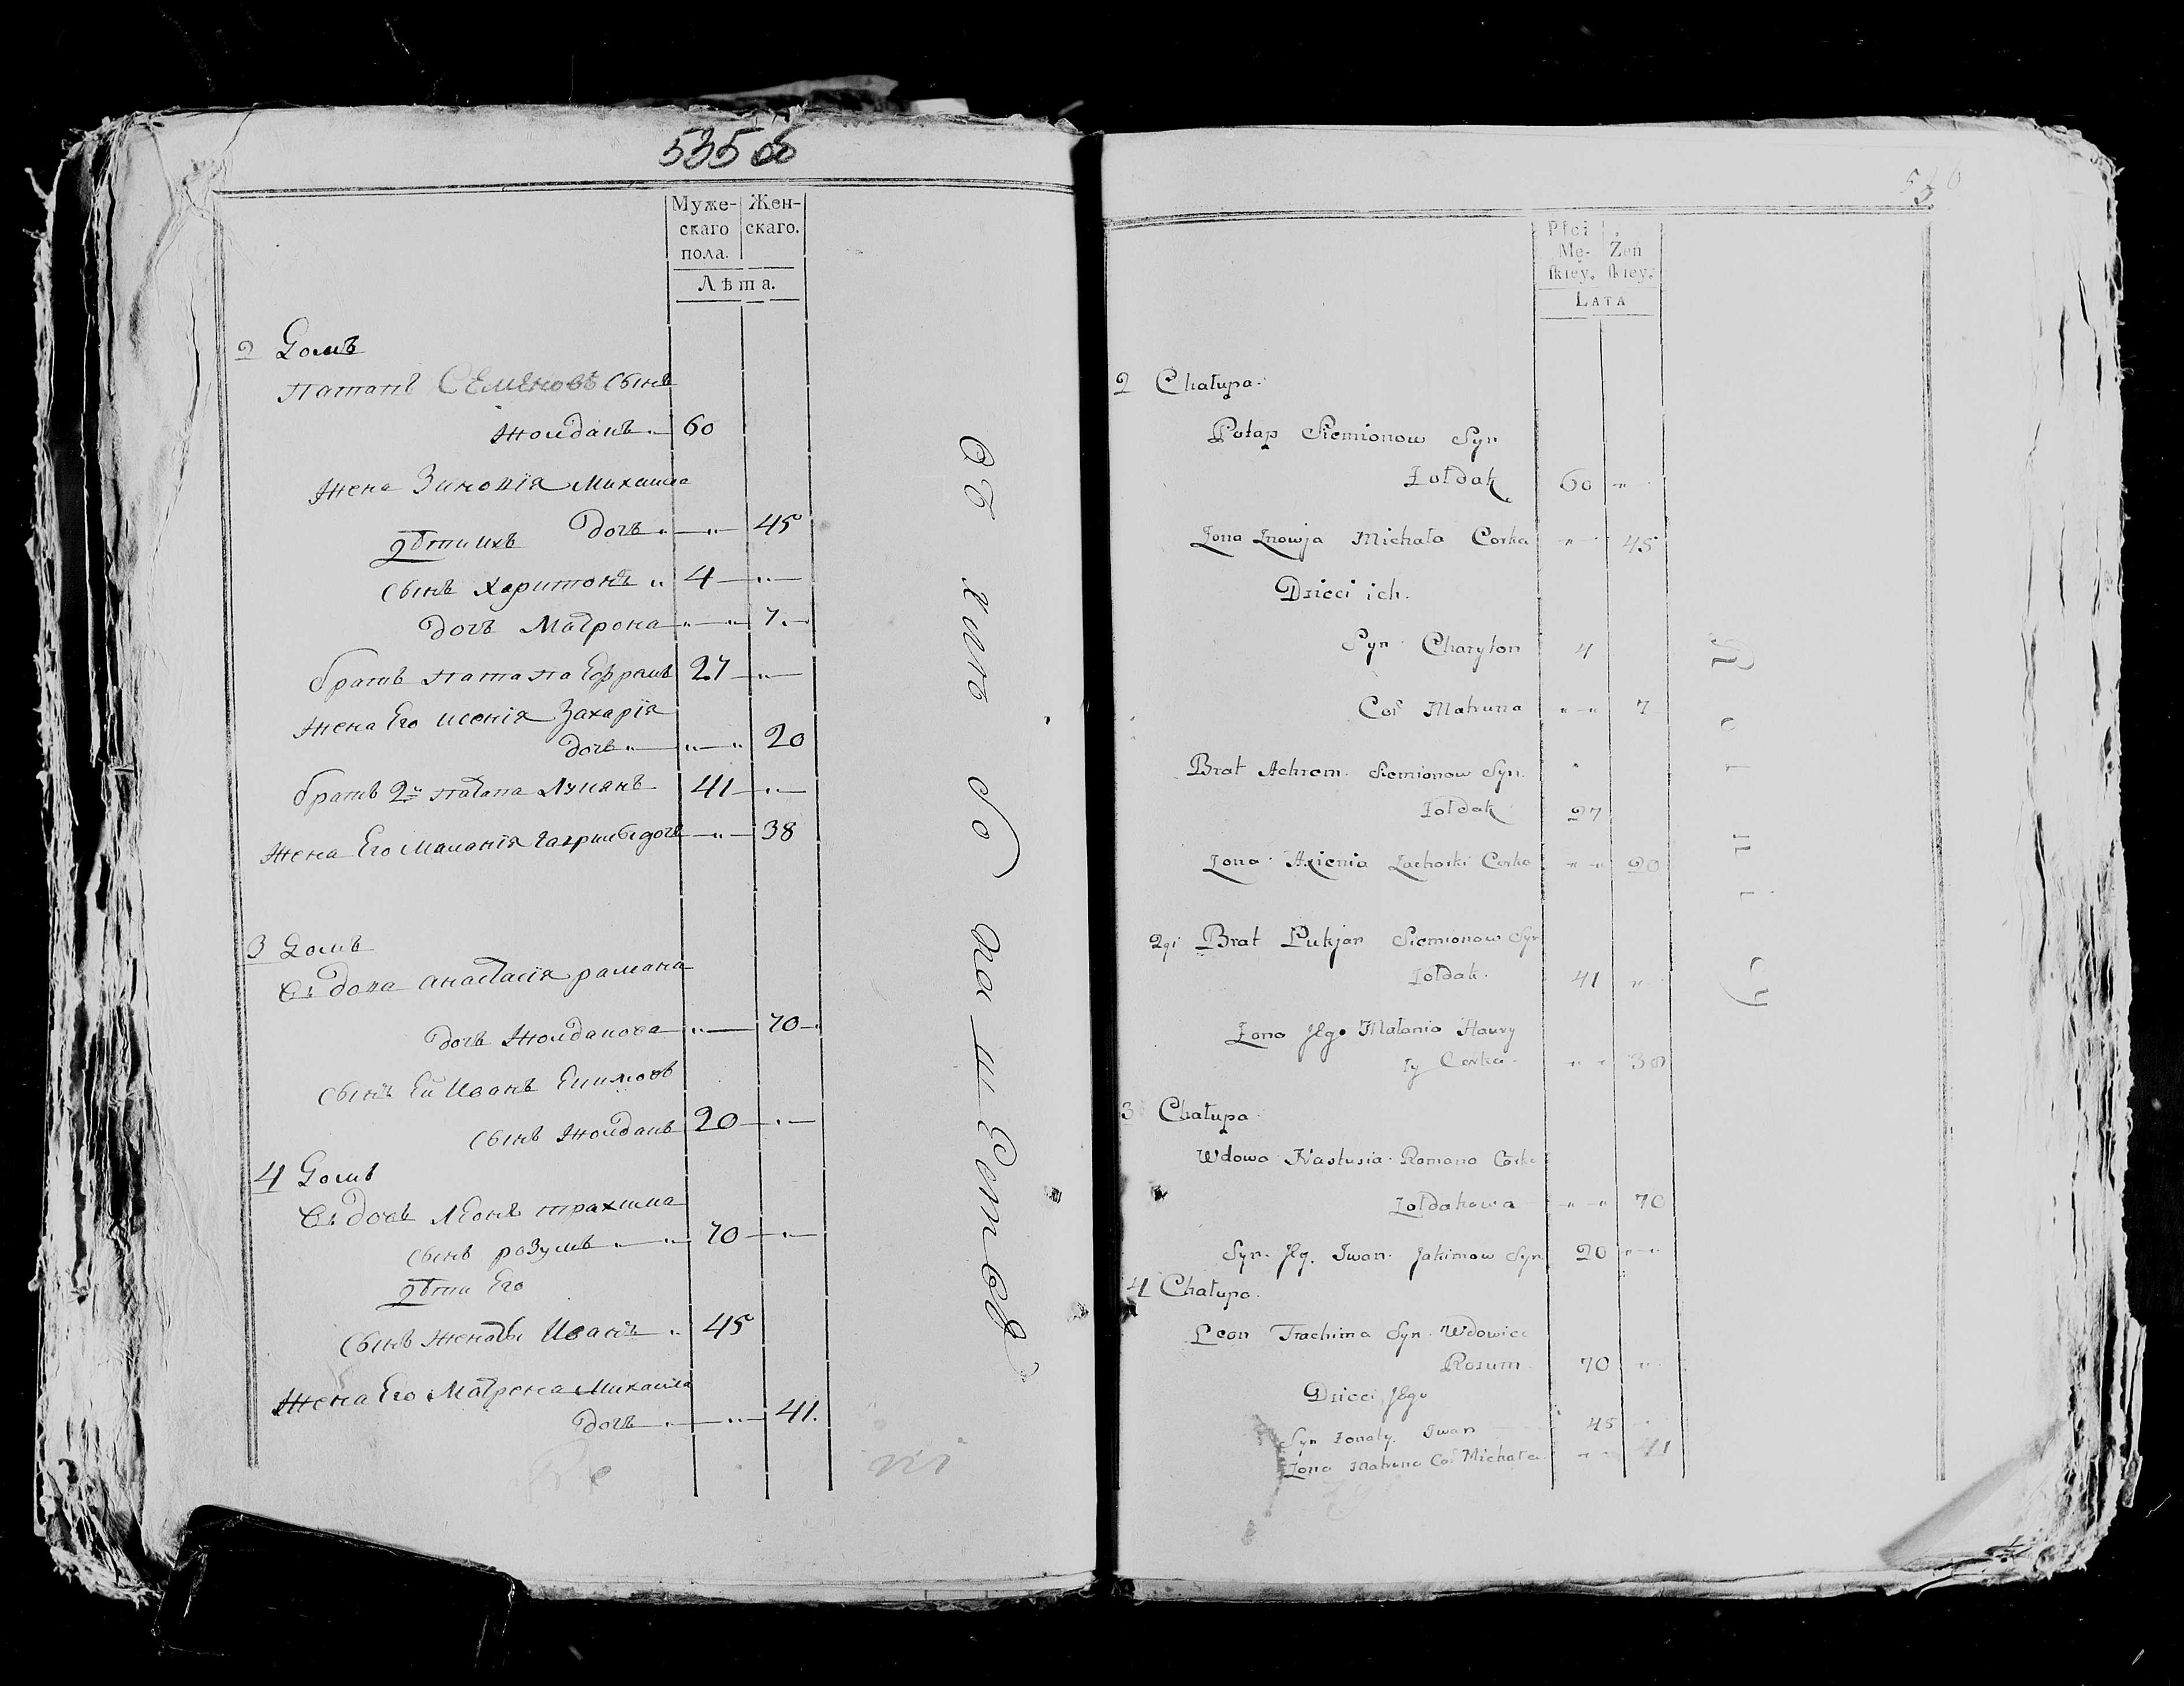 535 об
Муже-
скаго
пола.
Жен-
скаго.
Лѣта.
2 Домъ
Патапъ Семеновъ сынъ
Жолдакъ 60
Жена Зиновія Михаила
дочь 45
дѣти ихъ
сынъ Харитонъ 4
дочь Матрона 7
братъ патапа Ефремъ 27
Жена Его Ксенія Захарія
дочь 20
братъ 2й патапа Лукянъ 41
Жена Его Маланія Гаврилы дочь 38
3 Домъ
Вдова Анастасія романа
дочь Жолдакова 70
сынъ Ей Иванъ Екимовъ
сынъ Жолдакъ 20
4 Домъ
Вдовъ Леонъ трахима
сынъ розумъ 70
дѣти Его
сынъ женатъ Иванъ 45
Жена Его Матрена Михаила
дочь 41.
536
Płci
Mę-
ſkiey.
Żeń
ſkiey.
LATA
2 Chałupa
Potap Siemionow Syn
Żołdak 60
Żona Znowja Michała Corka 45
Dzieci ich.
Syn Charyton 4
Cor Matruna 7
Brat Achrem Siemionow Syn
Żołdak 27
Żona Axienia Zacharki Corka 20
2gi Brat Łukjan Siemionow Syn
Żołdak 41
Żona Jego Małania Hawry
ły Corka 38
3 Chałupa
Wdowa Nastusia Romana Corka
Żołdakowa 70
Syn Jey Iwan Jakimow Syn 20
4 Chałupa
Leon Trachima Syn Wdowiec
Rozum 70
Dzieci Jego
Syn Żonaty Iwan 45
Żona Matruna Cor Michała 41